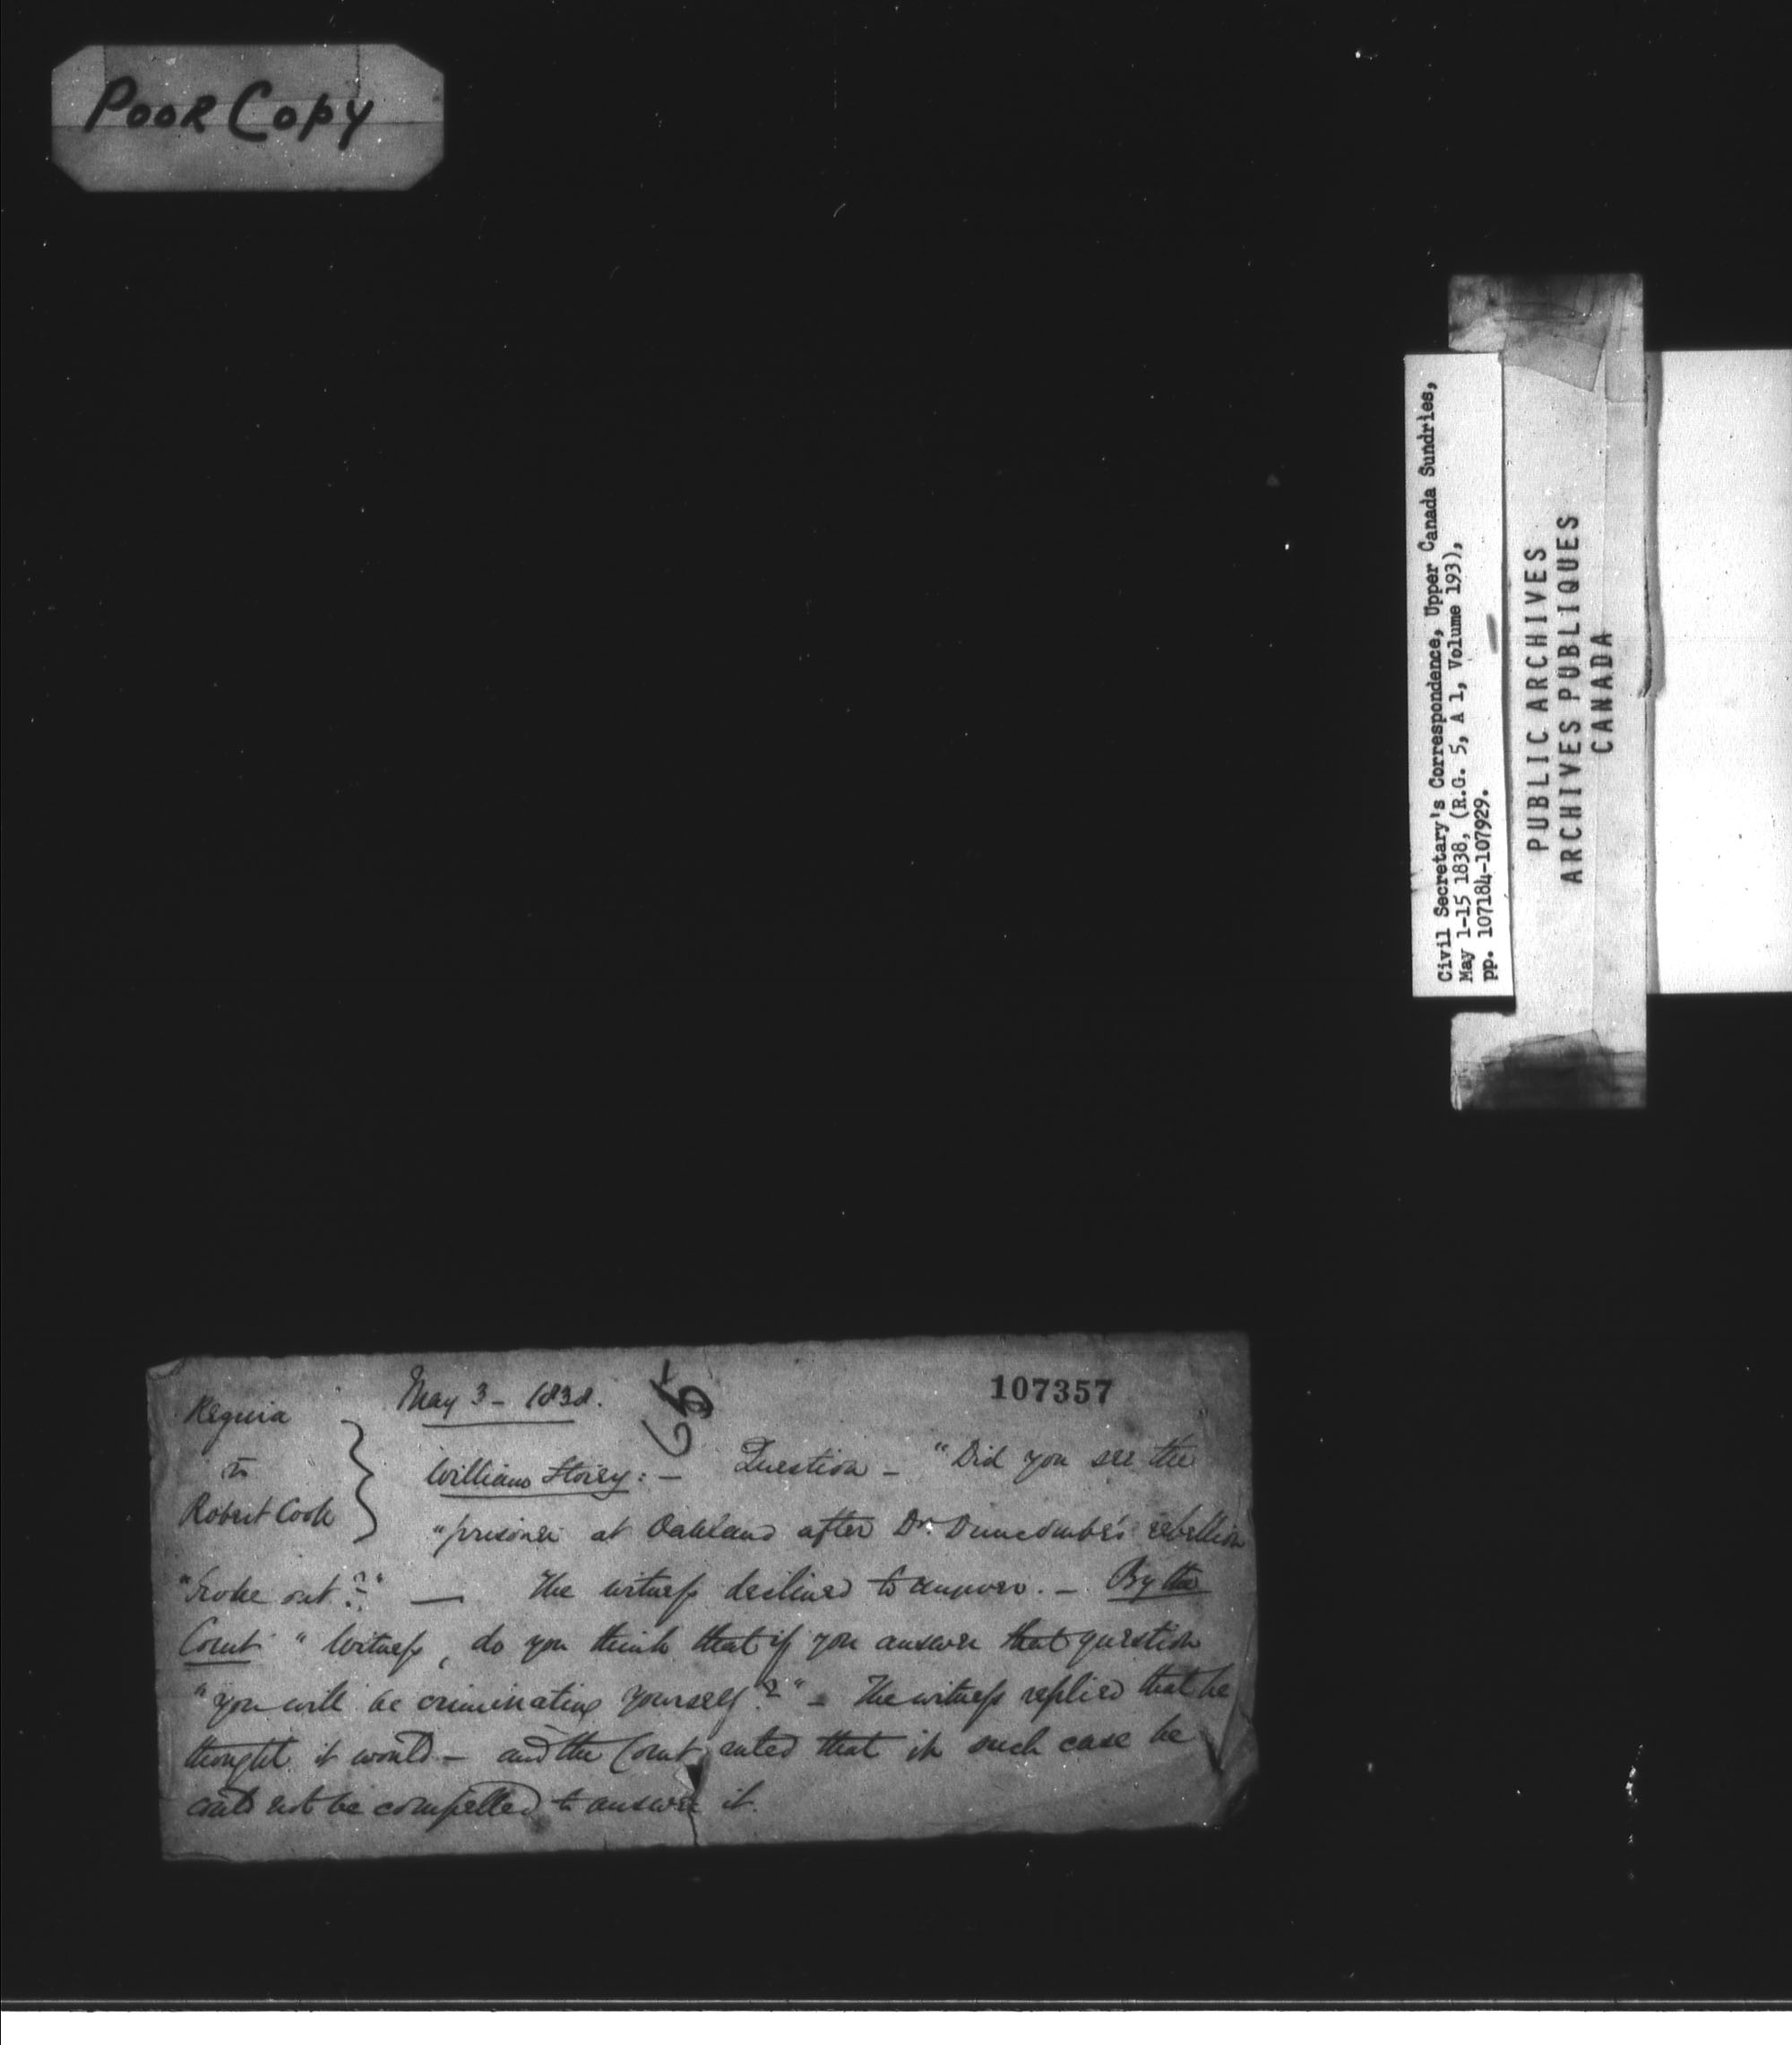 Poor Copy
Civil Secretary's Correspondence, Upper Canada Sundries,
May 1-15 1838, (R.G. 5, A 1, Volume 193),
pp. 107184-107929.
PUBLIC ARCHIVES
ARCHIVES PUBLIQUES
CANADA
May 3 - 1838.
107357
Regina
vs
Robert Cook
William Storey: — Question - "Did you see the
"prisoner at Oakland after Dr. Duncombe's rebellion
"broke out?" — The witness declined to answer. - By the
Court "Witness, do you think that if you answer that question
"you will be criminating yourself?" - The witness replied that he
thought it would - and the Court ruled that in such case he
could not be compelled to answer it.